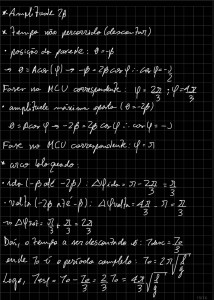 * Amplitude 2β
* Tempo não percorrido (descontar)
• posição da parede: θ=-β
→ θ = A cos(φ) → -β = 2β cos φ ∴ cos φ = -1/2
Fasor no MCU correspondente: φ = 2π/3 ; φ = 4π/3
• amplitude máxima oposta (θ = -2β)
θ = A cos φ → -2β = 2β cos φ ∴ cos φ = -1
Fase no MCU correspondente: φ = π
* arco bloqueado:
• ida (-β até -2β): Δφida = π - 2π/3 = π/3
• volta (-2β até -β): Δφvolta = 4π/3 - π = π/3
→ Δφtot = π/3 + π/3 = 2π/3
Daí, o tempo a ser descontado é: Tdesc = T0/3
onde T0 é o período completo: T0 = 2π√(l/g)
Logo, Tesf = T0 - T0/3 = 2/3 T0 = 4π/3 √(l/g)